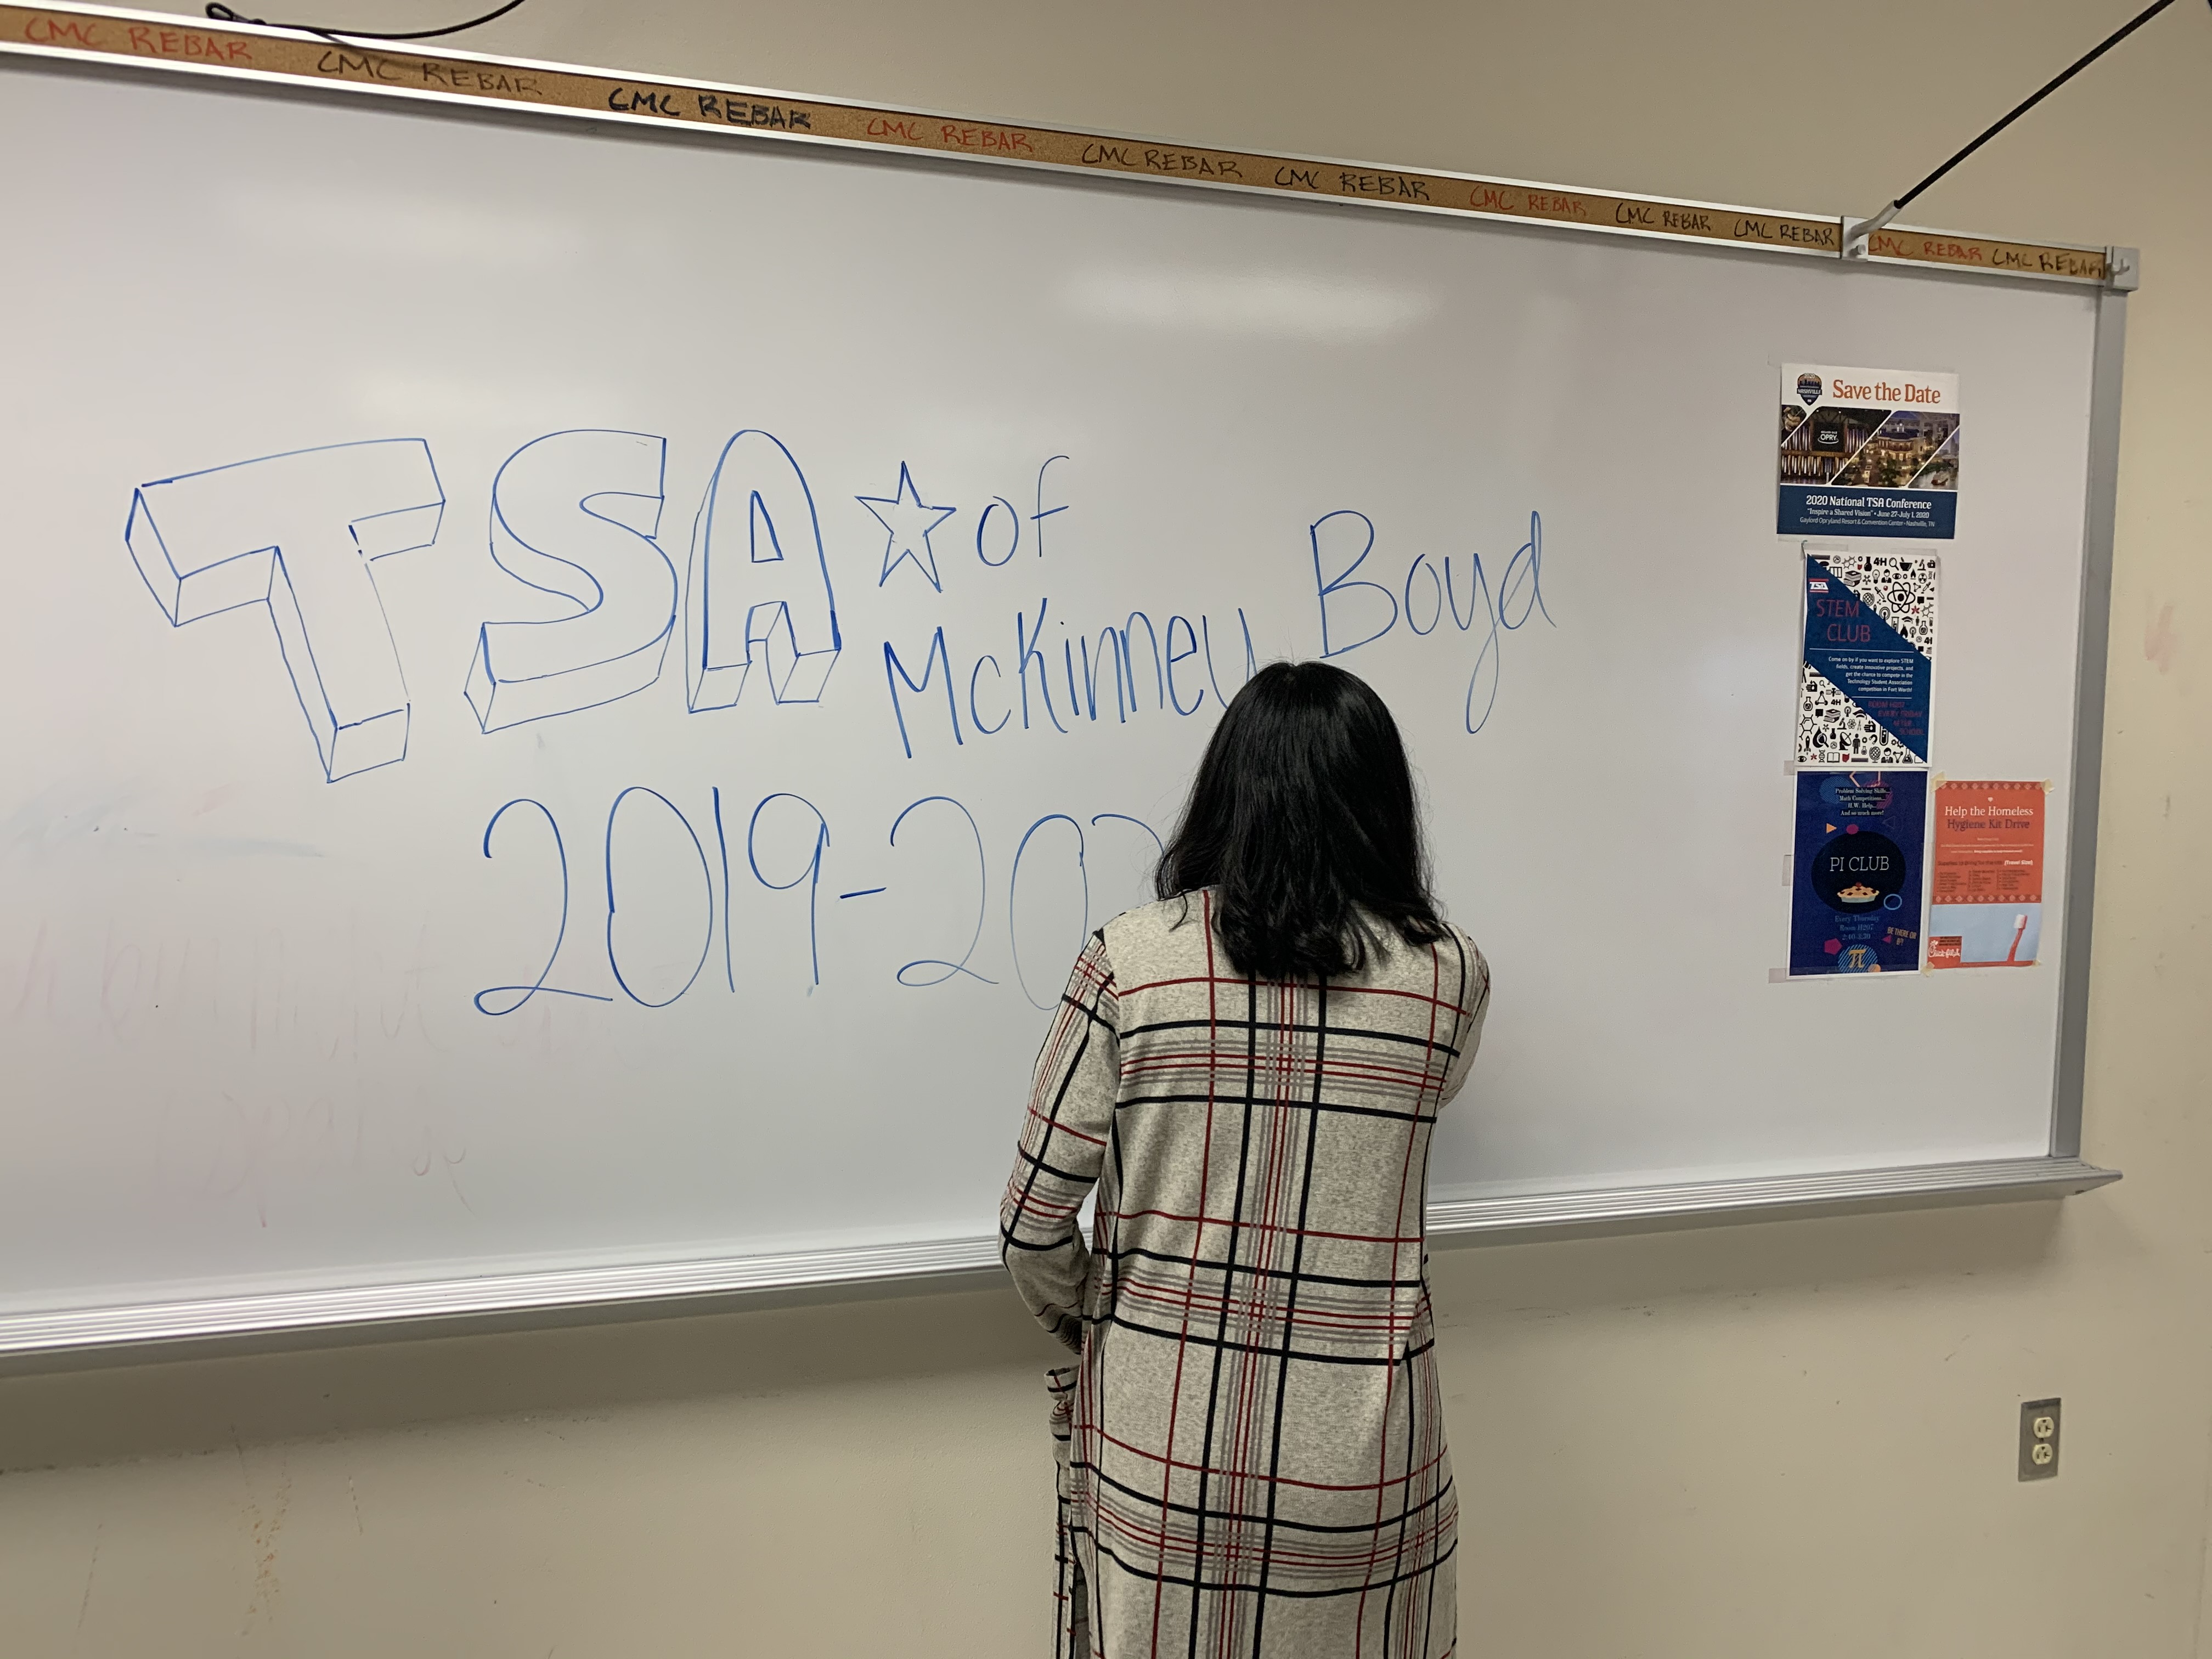 CMC REBAR CMC REBAR CMC REBAR CMC REBAR CMC REBAR CMC REBAR CMC REBAR CMC REBAR CMC REBAR CMC REBAR CMC REBAR
TSA of
McKinney Boyd
2019-202
Save the Date
OPRY
2020 National TSA Conference
"Inspire a Shared Vision" • June 27-July 1, 2020
Gaylord Opryland Resort & Convention Center - Nashville, TN
TSA
STEM
CLUB
Come on by if you want to explore STEM
fields, create innovative projects, and
get the chance to compete in the
Technology Student Association
competition in Fort Worth!
EVERY FRIDAY
AFTER
SCHOOL
Problem Solving Skills...
Math Competitions...
H.W. Help...
And so much more!
PI CLUB
Every Thursday
Room H207
2:40-3:30
BE THERE OR
π
Help the Homeless
Hygiene Kit Drive
(Travel Size)
Chick-fil-A